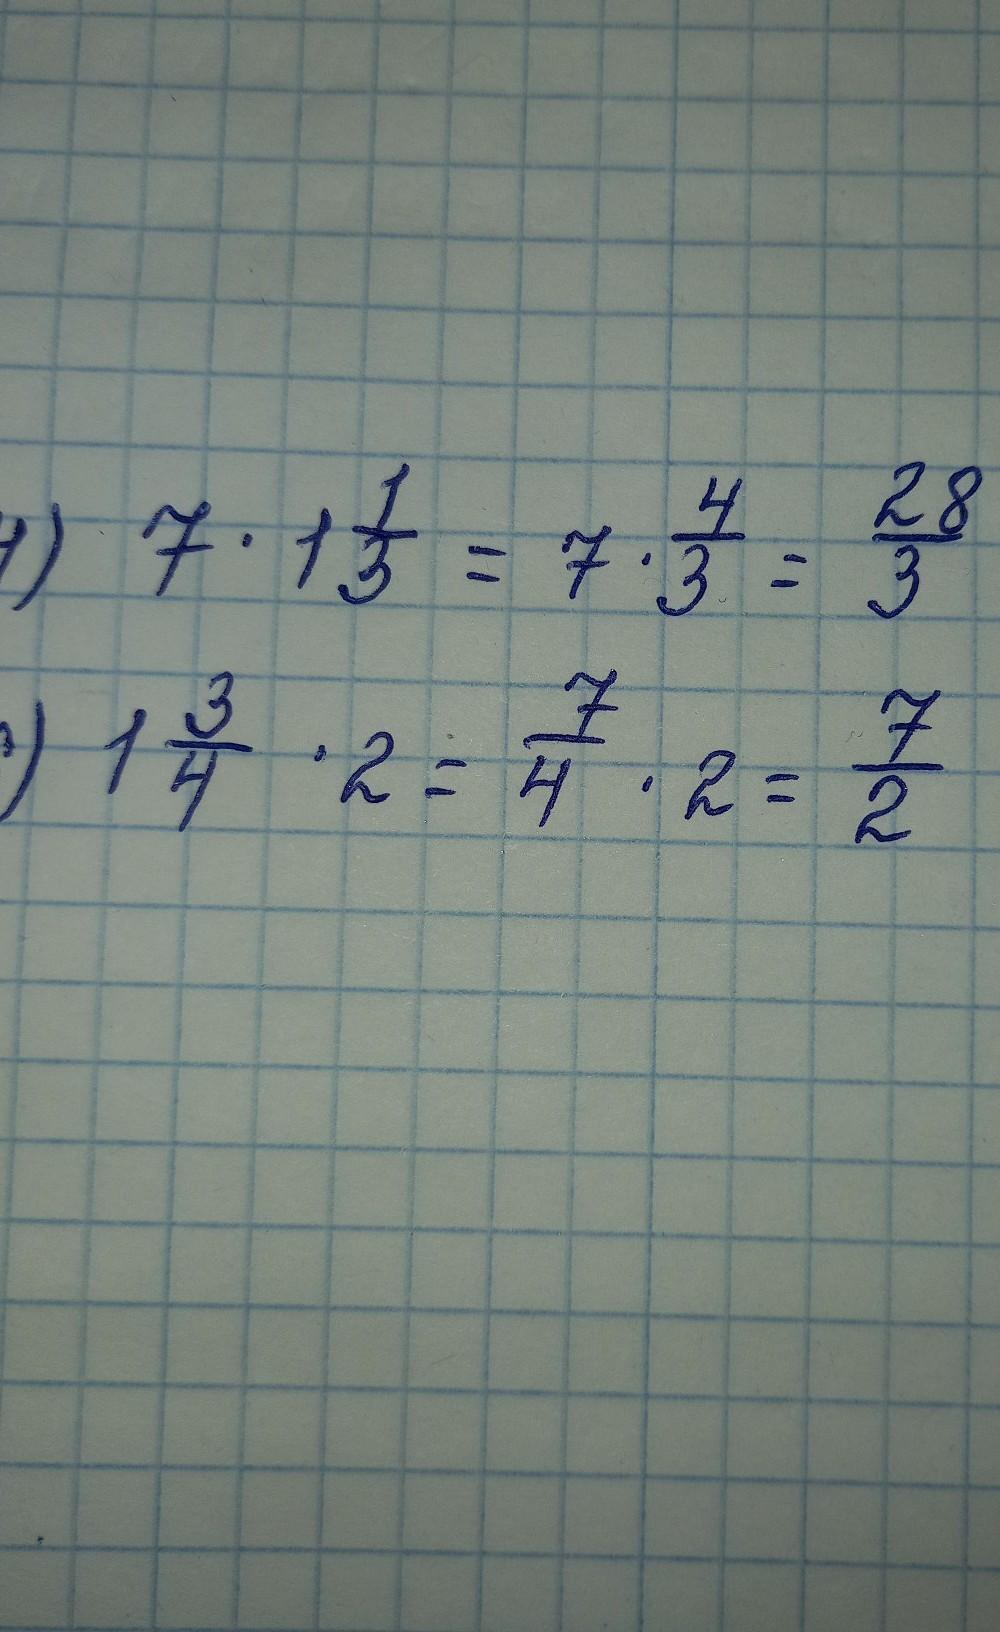 ) 7 · 1 1/3 = 7 · 4/3 = 28/3
) 1 3/4 · 2 = 7/4 · 2 = 7/2